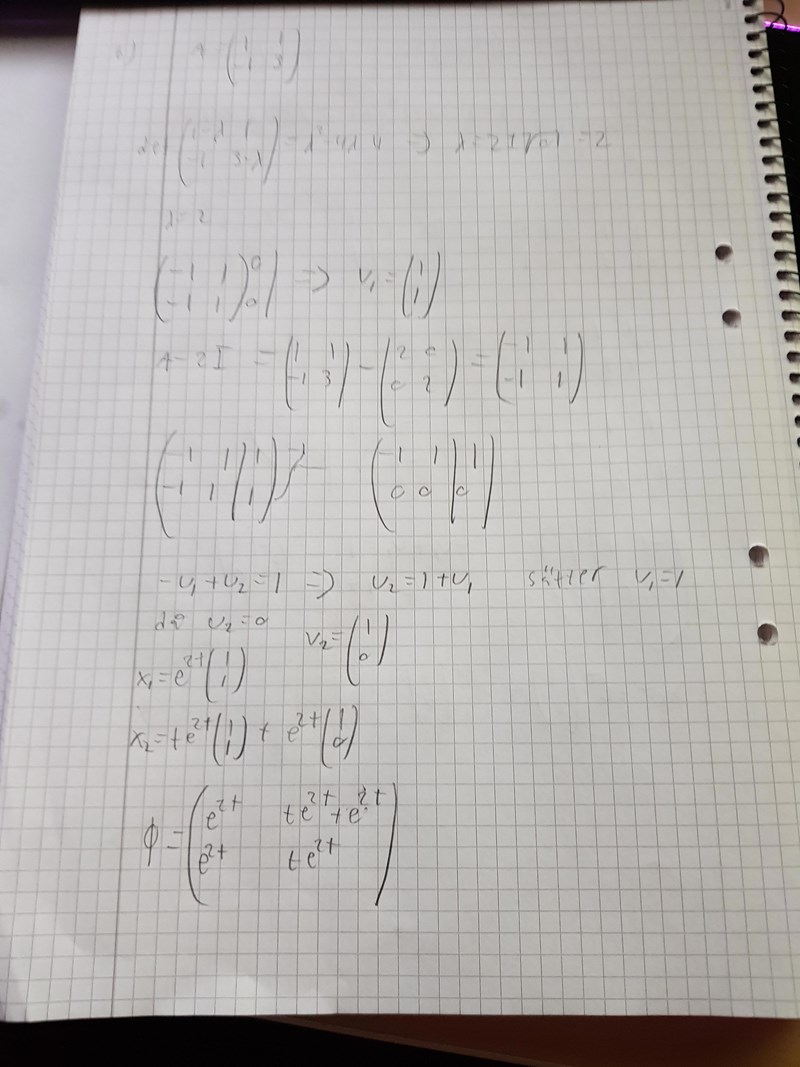 A = (1 1 / -1 3)
(1-λ 1 / -1 3-λ) = λ²-4λ+4 => λ=2±√0 = 2
λ=2
(-1 1 / -1 1 | 0 / 0) => v₁ = (1 / 1)
A-2I = (1 1 / -1 3) - (2 0 / 0 2) = (-1 1 / -1 1)
(-1 1 | 1 / -1 1 | 1) -1 (-1 1 | 1 / 0 0 | 0)
-v₁+v₂=1 => v₂=1+v₁ sätter v₁=1
då v₂=0 v₂=(1 / 0)
x₁=e^2t (1 / 1)
x₂=te^2t (1 / 1) + e^2t (1 / 0)
ϕ = (e^2t te^2t+e^2t / e^2t te^2t)